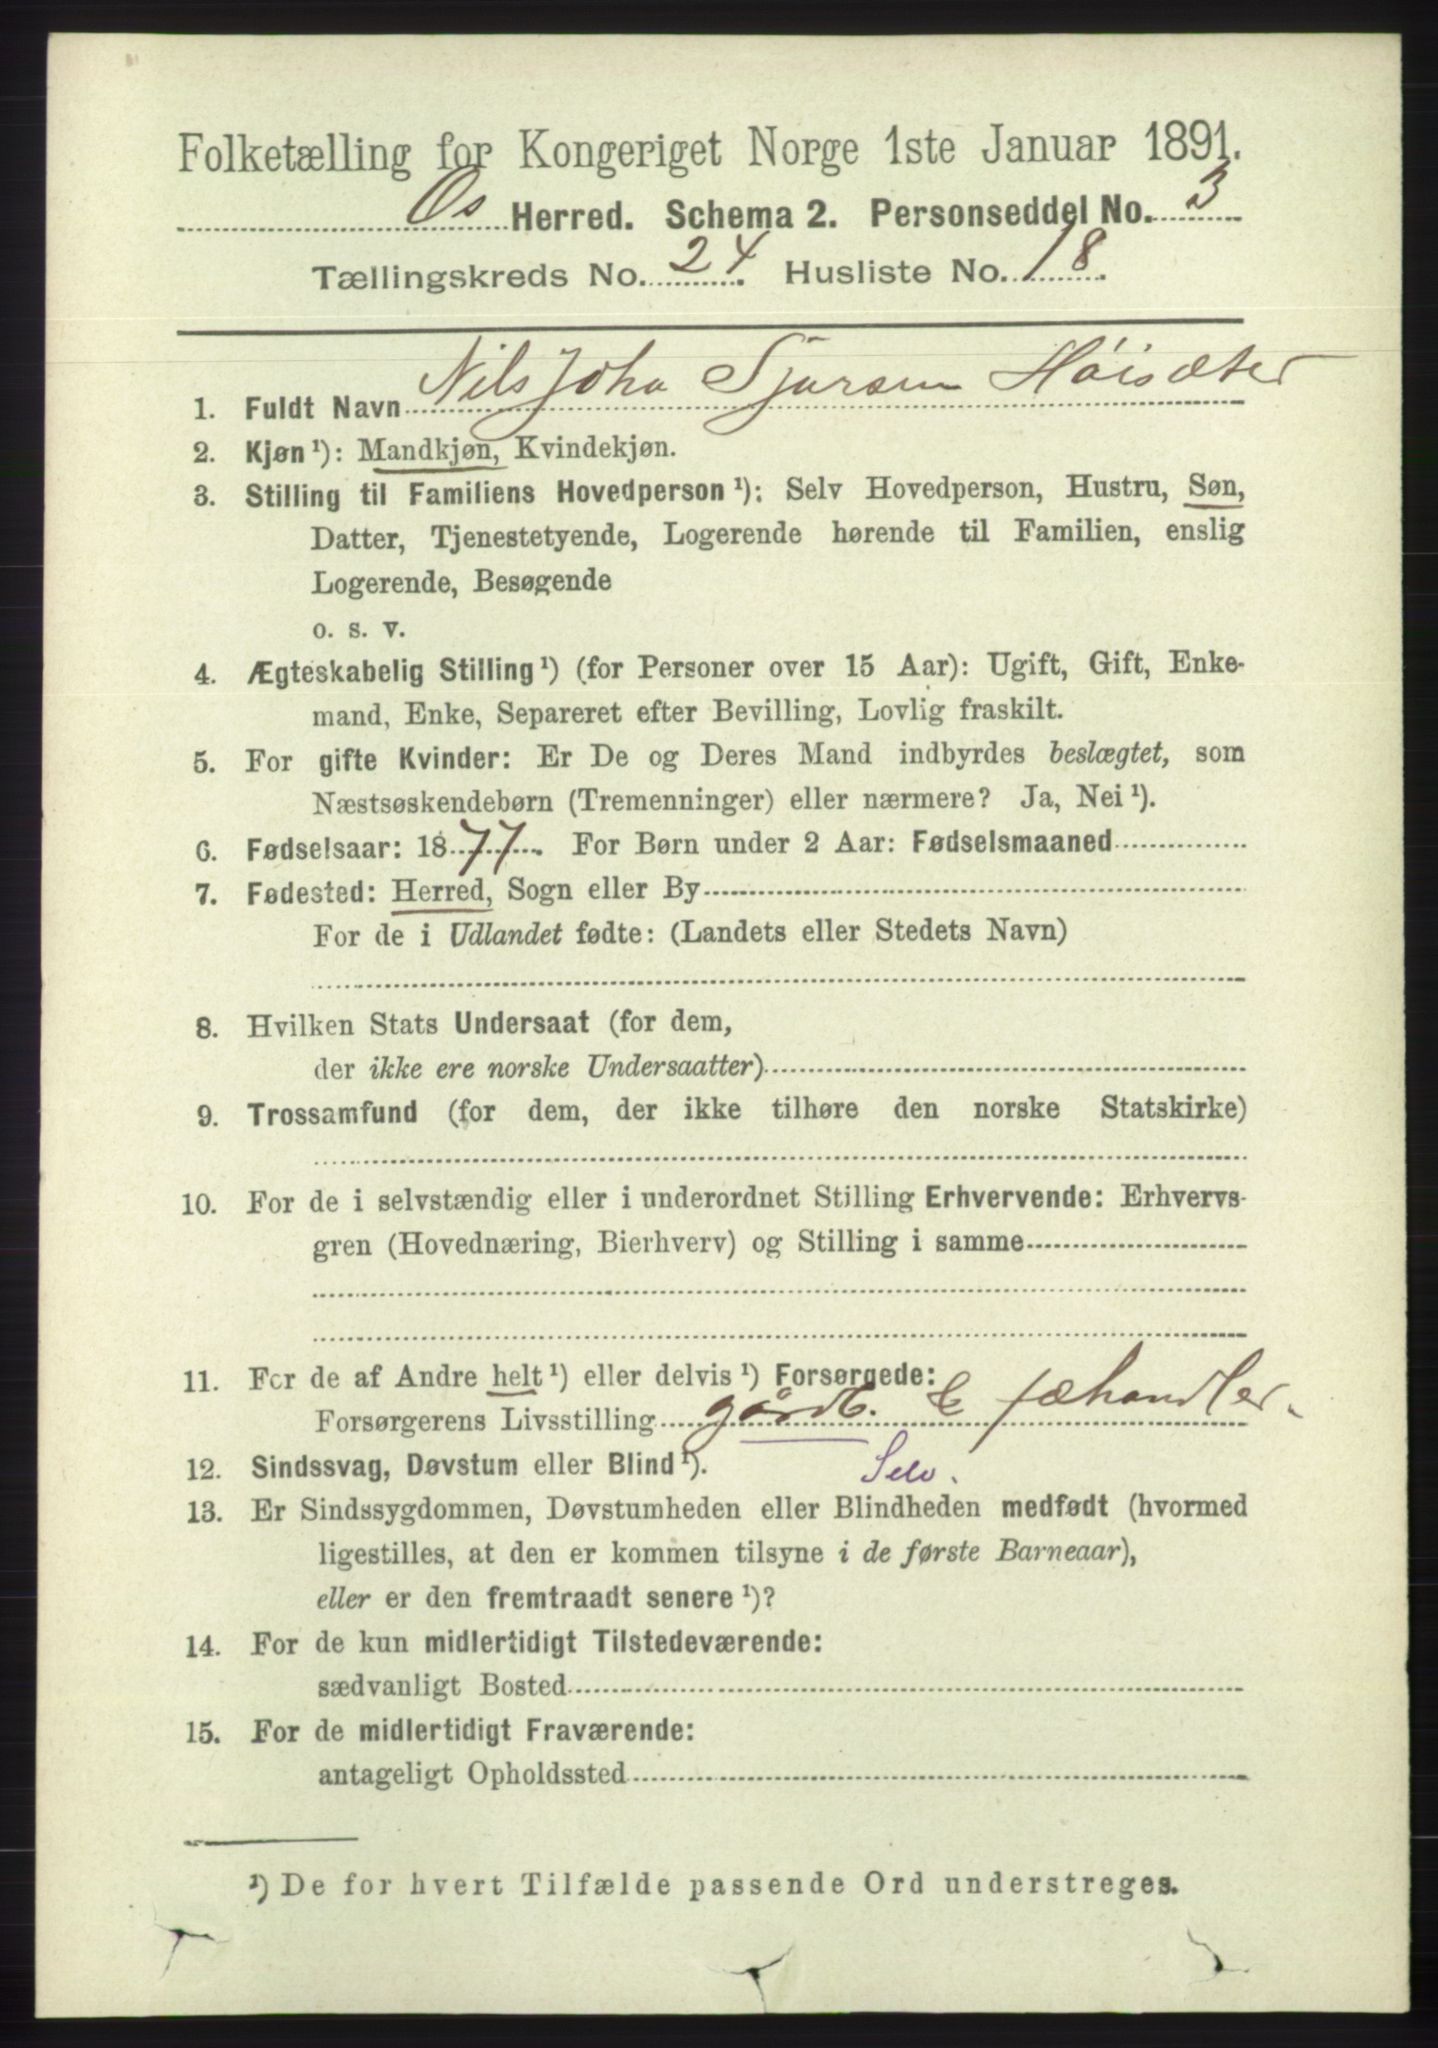 Folketælling for Kongeriget Norge 1ste Januar 1891.
Os Herred. Schema 2. Personseddel No. 3
Tællingskreds No. 24. Husliste No. 18.
1. Fuldt Navn Nils Joha Sjursen Høisæter
2. Kjøn ¹): Mandkjøn, Kvindekjøn.
3. Stilling til Familiens Hovedperson ¹): Selv Hovedperson, Hustru, Søn,
Datter, Tjenestetyende, Logerende hørende til Familien, enslig
Logerende, Besøgende
o. s. v.
4. Ægteskabelig Stilling ¹) (for Personer over 15 Aar): Ugift, Gift, Enke-
mand, Enke, Separeret efter Bevilling, Lovlig fraskilt.
5. For gifte Kvinder: Er De og Deres Mand indbyrdes beslægtet, som
Næstsøskendebørn (Tremenninger) eller nærmere? Ja, Nei ¹).
6. Fødselsaar: 1877. For Børn under 2 Aar: Fødselsmaaned
7. Fødested: Herred, Sogn eller By
For de i Udlandet fødte: (Landets eller Stedets Navn)
8. Hvilken Stats Undersaat (for dem,
der ikke ere norske Undersaatter)
9. Trossamfund (for dem, der ikke tilhøre den norske Statskirke)
10. For de i selvstændig eller i underordnet Stilling Erhvervende: Erhvervs-
gren (Hovednæring, Bierhverv) og Stilling i samme
11. For de af Andre helt ¹) eller delvis ¹) Forsørgede:
Forsørgerens Livsstilling gårdb. & fæhandler.
12. Sindssvag, Døvstum eller Blind ¹). Selv.
13. Er Sindssygdommen, Døvstumheden eller Blindheden medfødt (hvormed
ligestilles, at den er kommen tilsyne i de første Barneaar),
eller er den fremtraadt senere ¹)?
14. For de kun midlertidigt Tilstedeværende:
sædvanligt Bosted
15. For de midlertidigt Fraværende:
antageligt Opholdssted
¹) De for hvert Tilfælde passende Ord understreges.